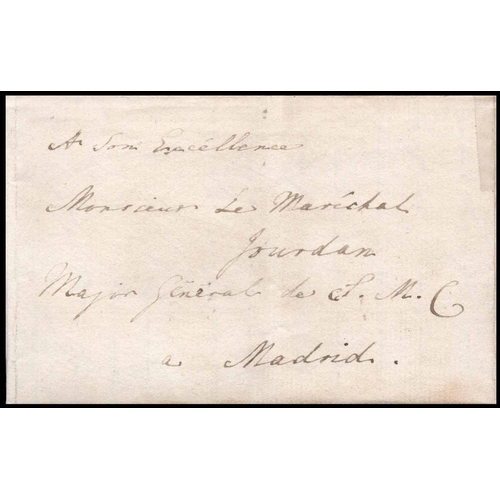 A Son Excéllence
Monsieur Le Maréchal
Jourdan
Major Général de S. M. C
a Madrid.